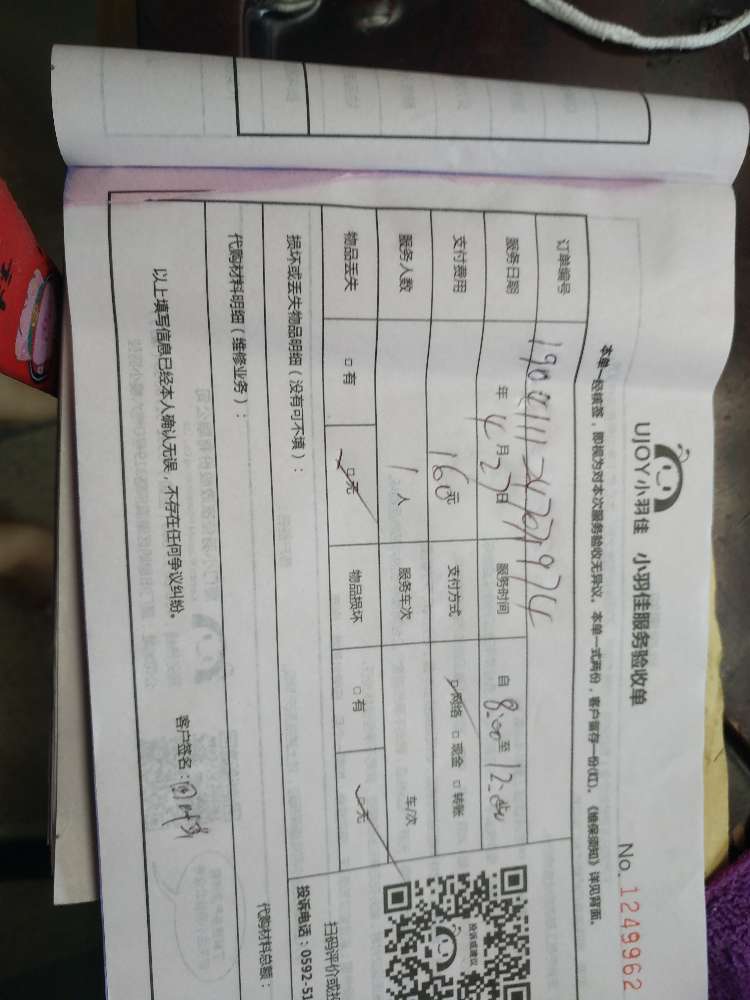 UJOY小羽佳 小羽佳服务验收单
No. 1249962
本单一经核签，即视为对本次服务验收无异议。本单一式两份，客户留存一份(红)。《维保须知》详见背面。
订单编号
服务日期 年 4月27日 服务时间 自 8:00 至 12:00
支付费用 160元 支付方式 □网络 □现金 □转账
服务人数 1人 服务车次 车/次
物品丢失 □有 □无 物品损坏 □有 □无
损坏或丢失物品明细（没有可不填）：
代购材料明细（维修业务）：
代购材料总额：
以上填写信息已经本人确认无误，不存在任何争议纠纷。
客户签名：
投诉或建议
扫码评价或投
投诉电话：0592-51